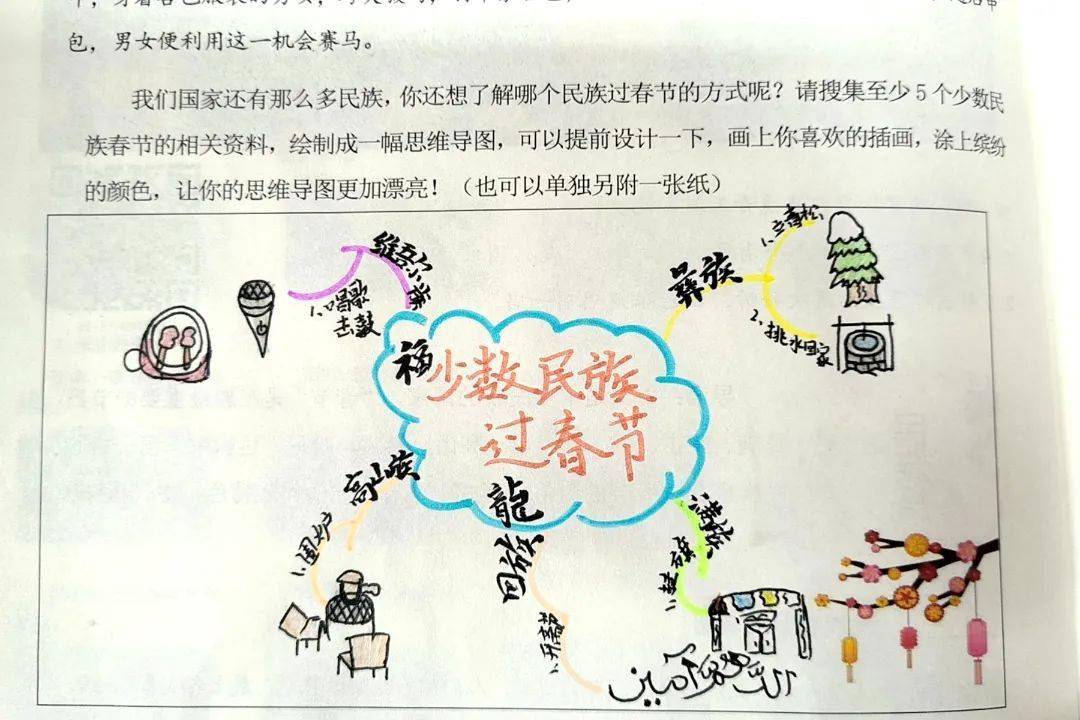 包，男女便利用这一机会赛马。
我们国家还有那么多民族，你还想了解哪个民族过春节的方式呢？请搜集至少5个少数民
族春节的相关资料，绘制成一幅思维导图，可以提前设计一下，画上你喜欢的插画，涂上缤纷
的颜色，让你的思维导图更加漂亮！（也可以单独另附一张纸）
维吾尔族
1、唱歌
击鼓
彝族
1、立青松
2、挑水回家
福
少数民族
过春节
龍
高山族
1、围炉
回族
1、开斋节
满族
1、挂旗